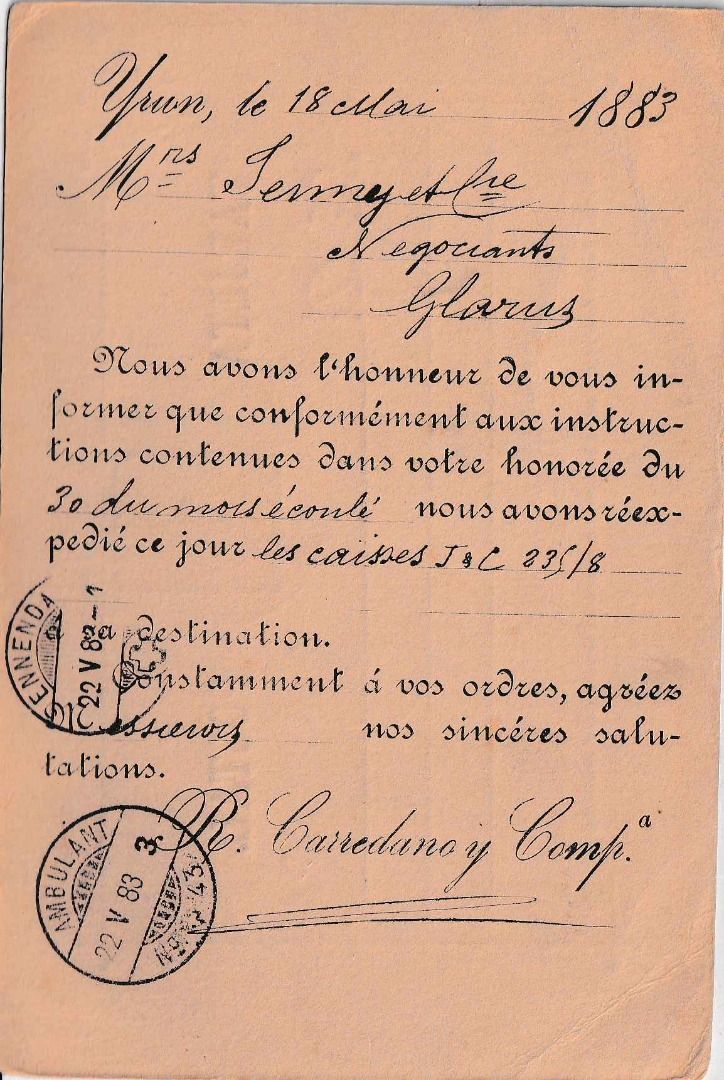 Yrun, le 18 Mai 1883
Mrs Jenny et Cie
Négociants
Glarus
Nous avons l'honneur de vous in-
former que conformément aux instruc-
tions contenues dans votre honorée du
30 du mois écoulé nous avons réex-
pedié ce jour les caisses J & C 235/8
sa destination.
Constamment á vos ordres, agréez
Messieurs nos sincéres salu-
tations.
R. Carredano y Comp.ª
ENNENDA
22 V 83-1
AMBULANT
22 V 83 3